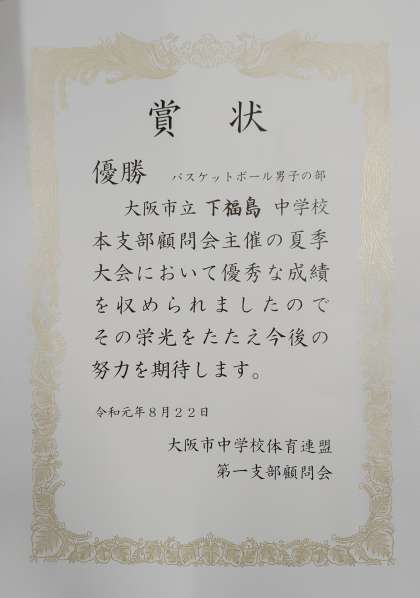 賞状
優勝 バスケットボール男子の部
大阪市立 下福島 中学校
本支部顧問会主催の夏季
大会において優秀な成績
を収められましたので
その栄光をたたえ今後の
努力を期待します。
令和元年8月22日
大阪市中学校体育連盟
第一支部顧問会